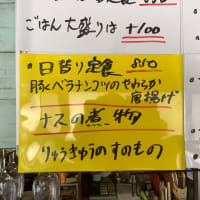 550
ごはん大盛りは +100
日替り定食 850
豚ペラナンコツのやわらか
唐揚げ
ナスの煮物
りゅうきゅうのすのもの